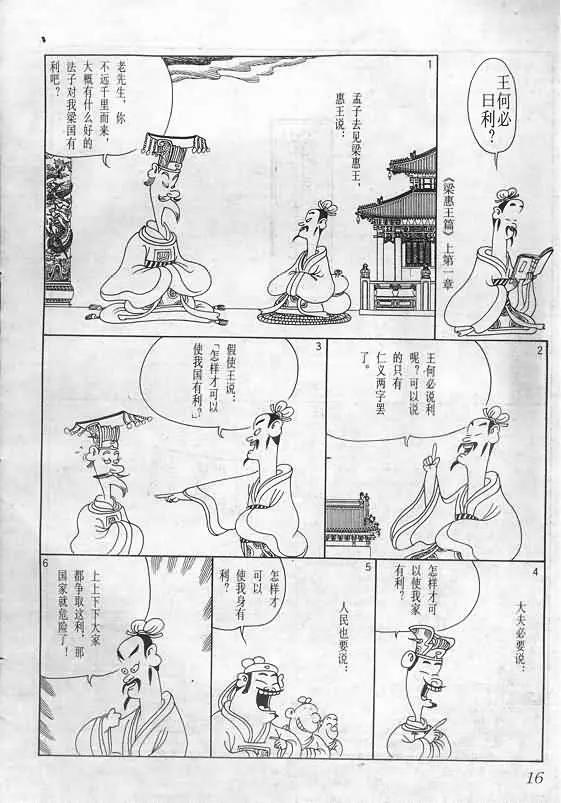 王何必
曰利？
《梁惠王篇》上第一章
1
孟子去见梁惠王，
惠王说：
老先生，你
不远千里而来，
大概有什么好的
法子对我梁国有
利吧？
2
王何必说利
呢？可以说
的只有
仁义两字罢
了。
3
假使王说：
「怎样才可以
使我国有利？」
4
大夫必要说：
怎样才可
以使我家
有利？
5
人民也要说：
怎样才
可以
使我身有
利？
6
上上下下大家
都争取这利，那
国家就危险了！
16